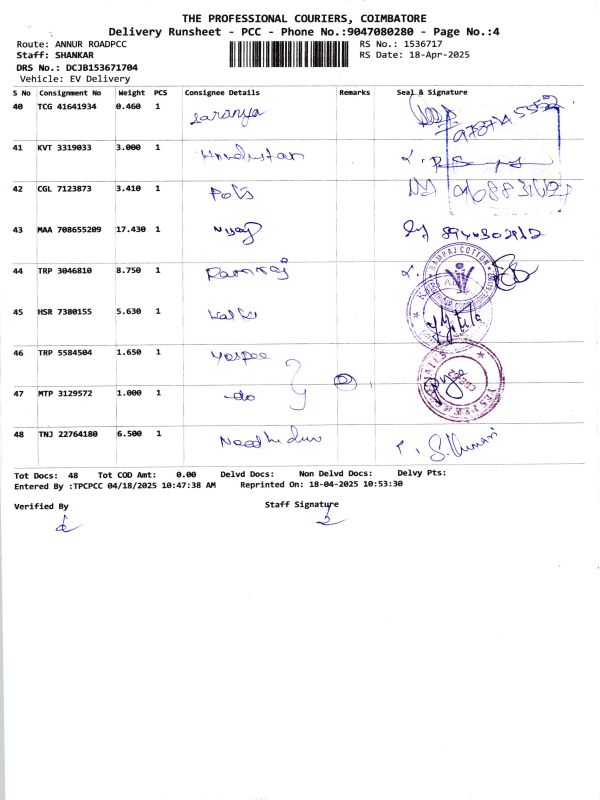 THE PROFESSIONAL COURIERS, COIMBATORE
Delivery Runsheet - PCC - Phone No.:9047080280 - Page No.:4
Route: ANNUR ROADPCC RS No.: 1536717
Staff: SHANKAR RS Date: 18-Apr-2025
DRS No.: DCJB153671704
Vehicle: EV Delivery
S No Consignment No Weight PCS Consignee Details Remarks Seal & Signature
40 TCG 41641934 0.460 1 Saranya
41 KVT 3319033 3.000 1 Hindustan
42 CGL 7123873 3.410 1
43 MAA 708655209 17.430 1
44 TRP 3046810 8.750 1 Ramraj RAMRAJ COTTON
45 HSR 7380155 5.630 1
46 TRP 5584504 1.650 1
47 MTP 3129572 1.000 1 -do
48 TNJ 22764180 6.500 1
Tot Docs: 48 Tot COD Amt: 0.00 Delvd Docs: Non Delvd Docs: Delvy Pts:
Entered By :TPCPCC 04/18/2025 10:47:38 AM Reprinted On: 18-04-2025 10:53:30
Verified By Staff Signature